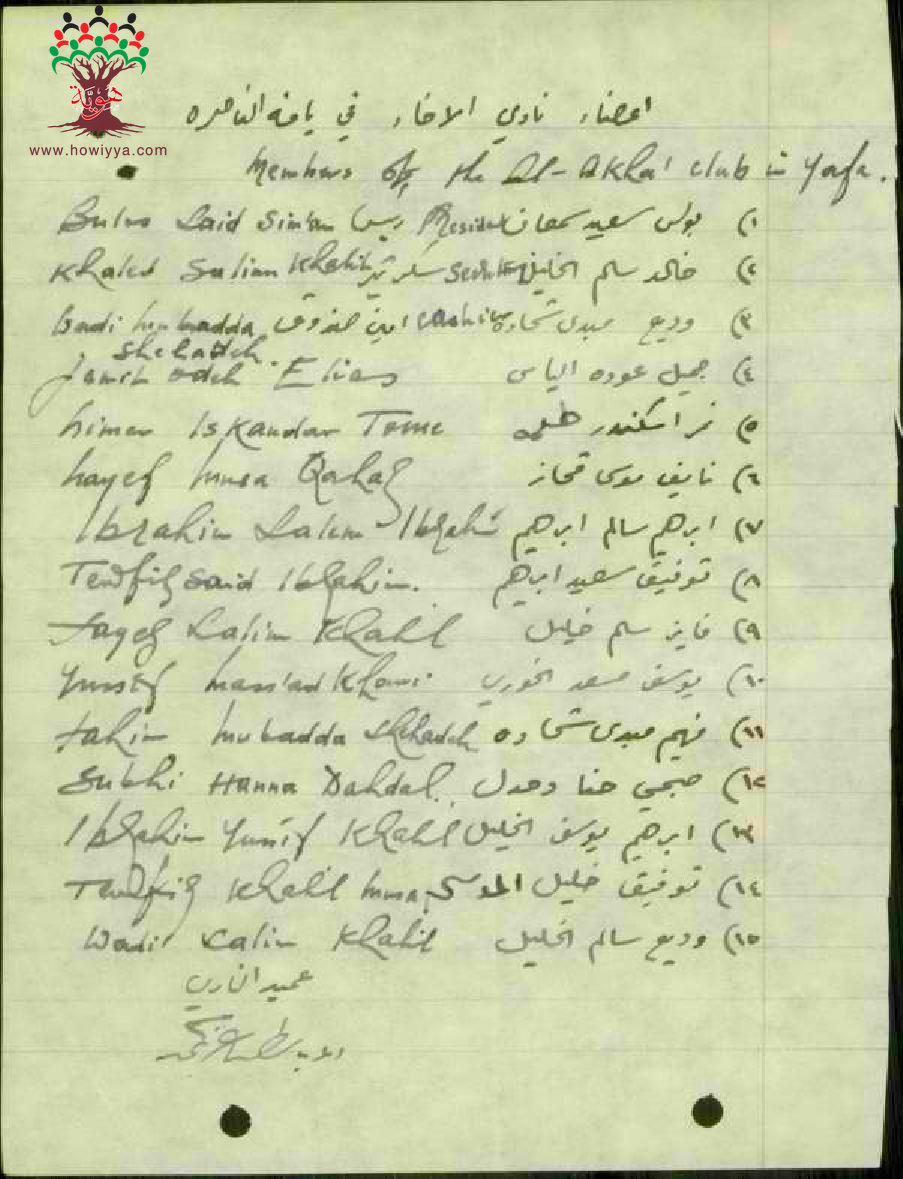 هويّة
www.howiyya.com
اعضاء نادي الاخاء في يافة الناصره
Members of the Al-Akha' club in Yafa.
١) بولس سعيد سمعان President ريس Bulus Said Sim'an
٢) خالد سالم الخليل سكرتير Khaled Salim Khalil
٣) وديع مبدى شحاده Cashier امين الصندوق Wadi Mubadda Shehadeh
٤) جميل عوده الياس Jamil Odeh Elias
٥) نمر اسكندر طعمه Nimer Iskandar Tome
٦) نايف موسى قحاز Nayef Musa Qahaz
٧) ابرهيم سالم ابرهيم Ibrahim Salem Ibrahim
٨) توفيق سعيد ابرهيم Tewfiq Said Ibrahim.
٩) فايز سالم خليل Fayez Salim Khalil
١٠) يوسف مسعد الخوري Yussef Mass'ad Khouri
١١) فهيم مبدى شحاده Fahim Mubadda Shehadeh
١٢) صبحي حنا دحدل Subhi Hanna Dahdal.
١٣) ابرهيم يوسف الخليل Ibrahim Yussif Khalil
١٤) توفيق خليل الموسى Tewfiq Khalil Musa.
١٥) وديع سالم الخليل Wadi' Salim Khalil
عميد النادي